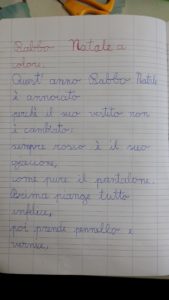 Babbo Natale a
colori.
Quest' anno Babbo Natale
è annoiato
perchè il suo vestito non
è cambiato:
sempre rosso è il suo
giaccone,
come pure il pantalone.
Prima piange tutto
infelice,
poi prende pennello e
vernice,